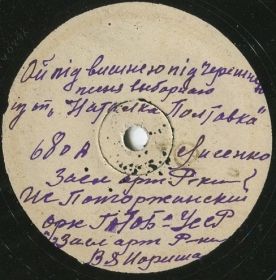 Ой під вишнею під черешнею
пісня выборного
из оп. "Наталка Полтавка"
680 А Лисенко
Засл арт Р-ки
Ис Паторжинский
орк ГТОБ УССР
Засл арт Р-ки
В Я Йориша